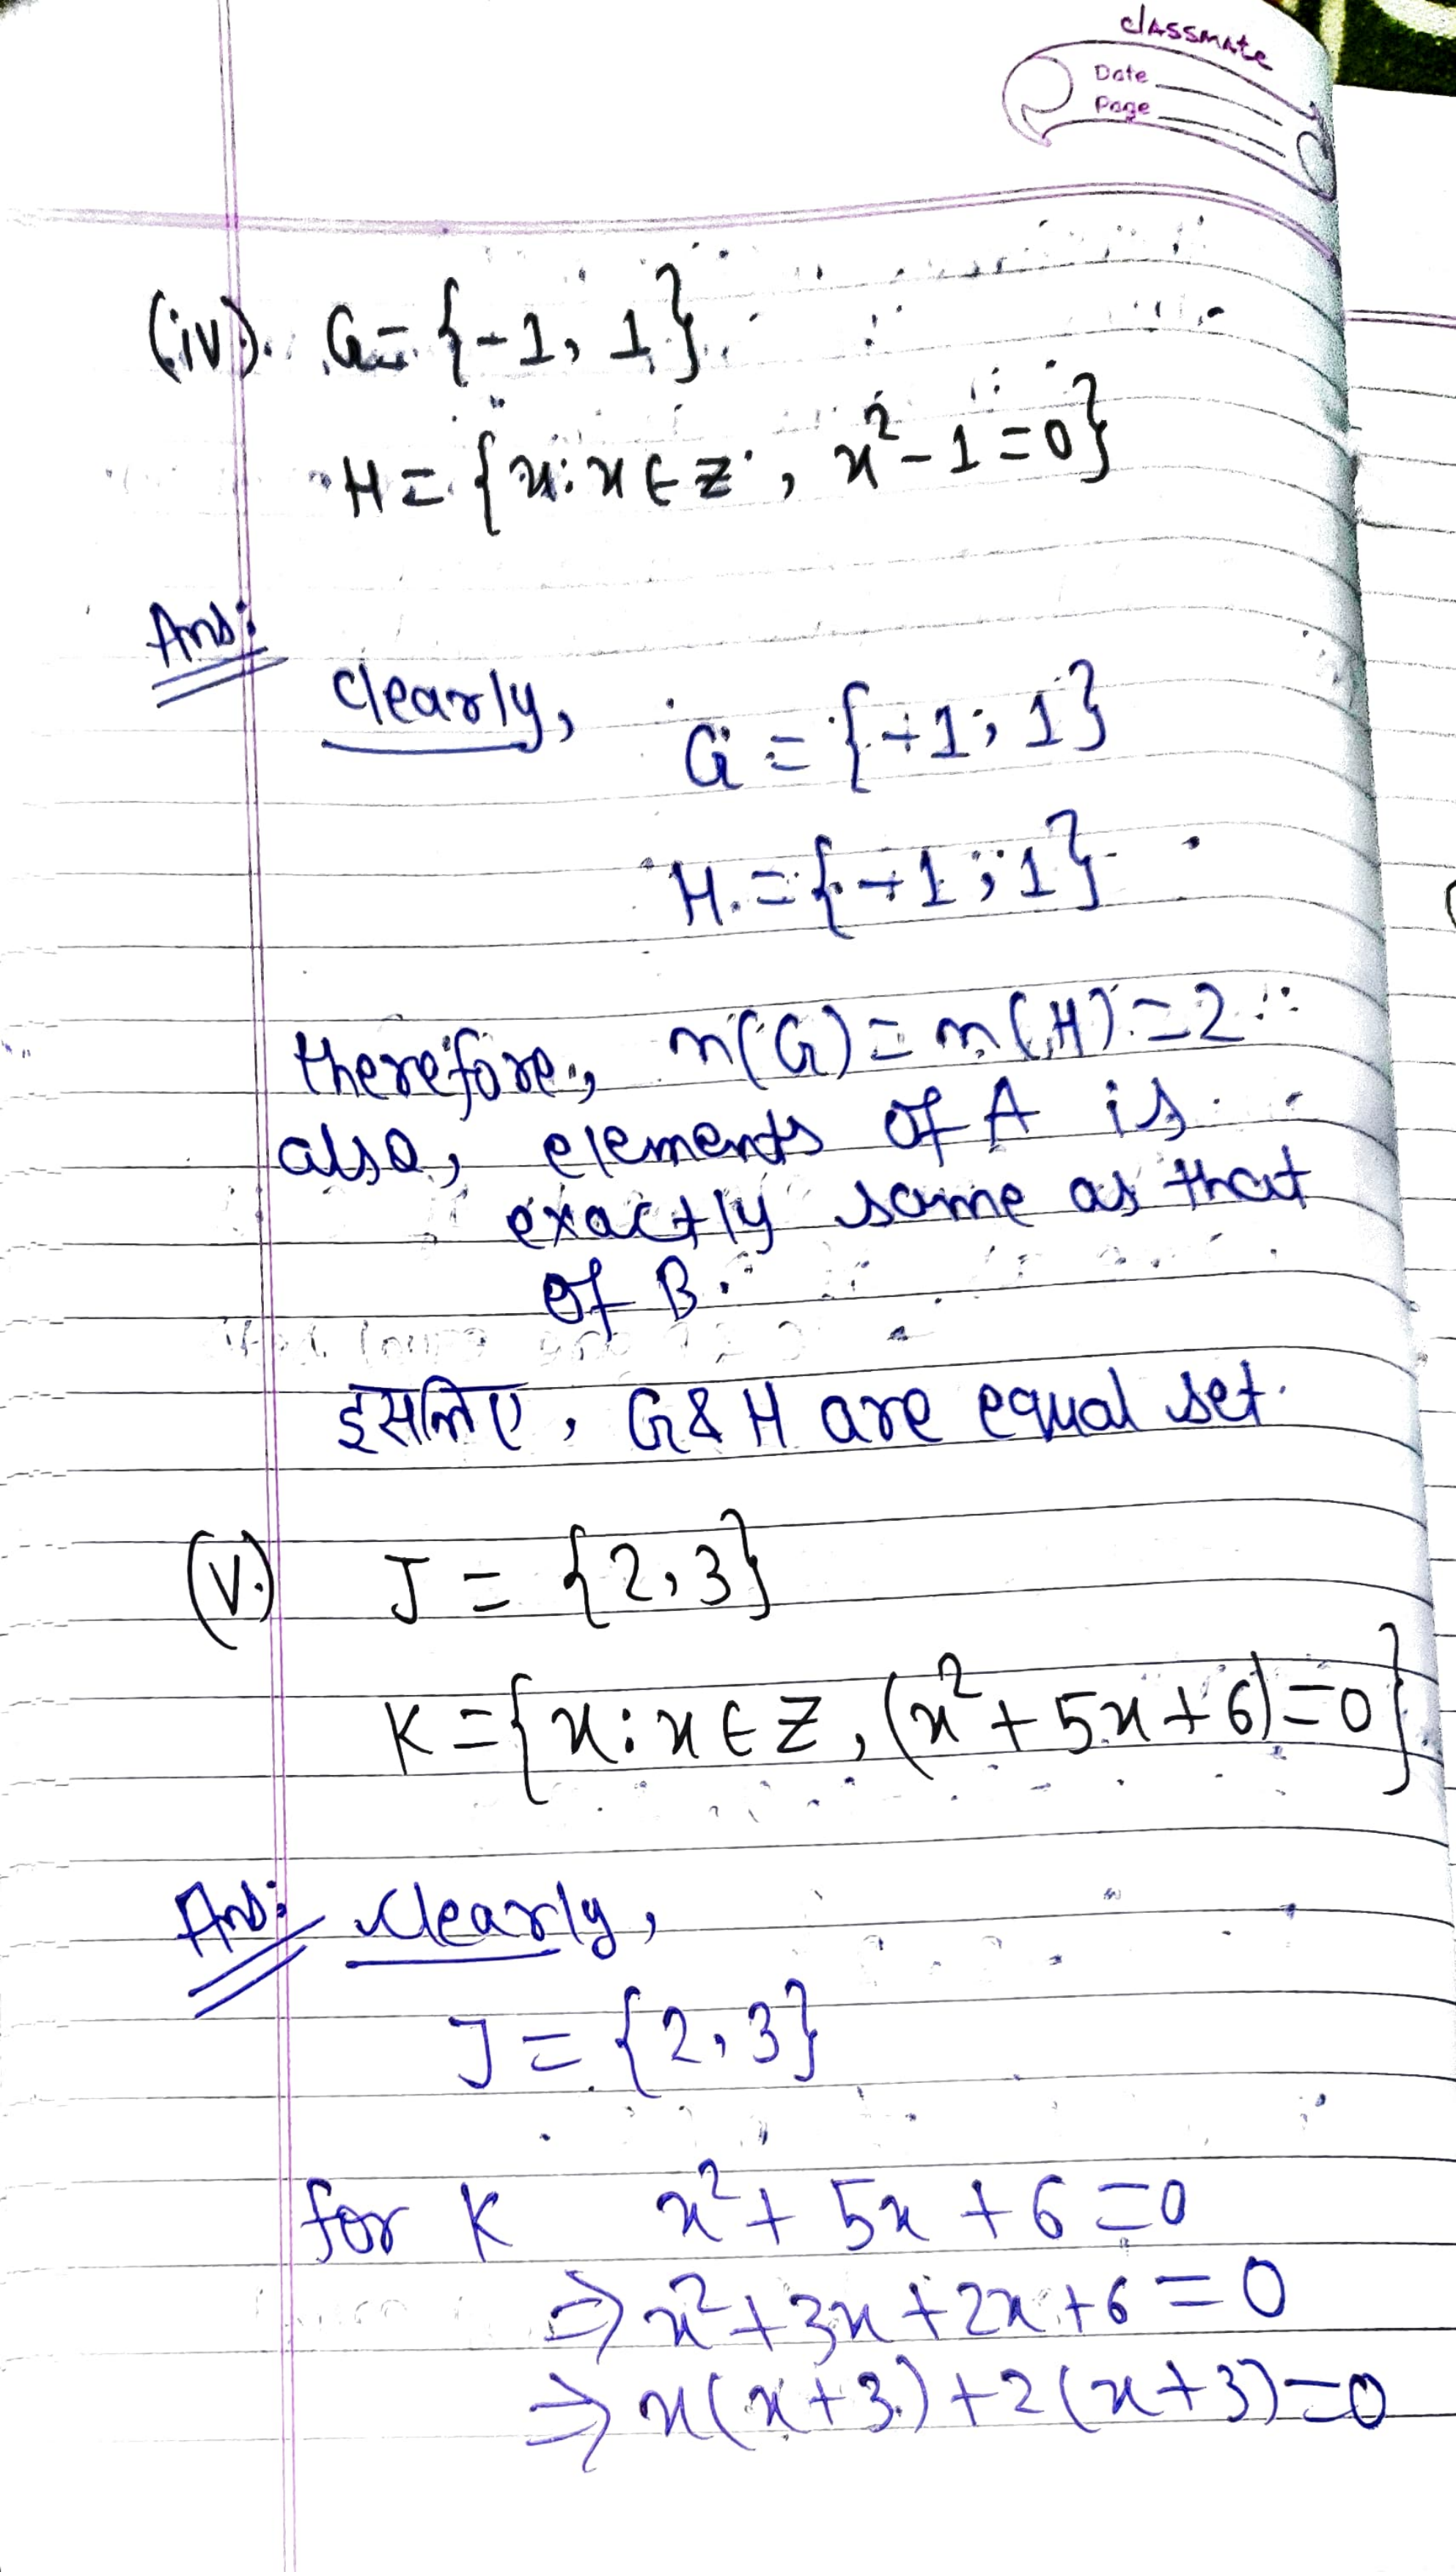 classmate
Date
Page
(iv). G = {-1, 1}
H = {x : x ∈ Z, x² - 1 = 0}
Ans:
clearly, G = {-1, 1}
H = {-1, 1}
therefore, n(G) = n(H) = 2
also, elements of A is
exactly same as that
of B.
इसलिए, G & H are equal set.
(v.) J = {2, 3}
K = {x : x ∈ Z, (x² + 5x + 6) = 0}
Ans: Clearly,
J = {2, 3}
for K x² + 5x + 6 = 0
⇒ x² + 3x + 2x + 6 = 0
⇒ x(x + 3) + 2(x + 3) = 0